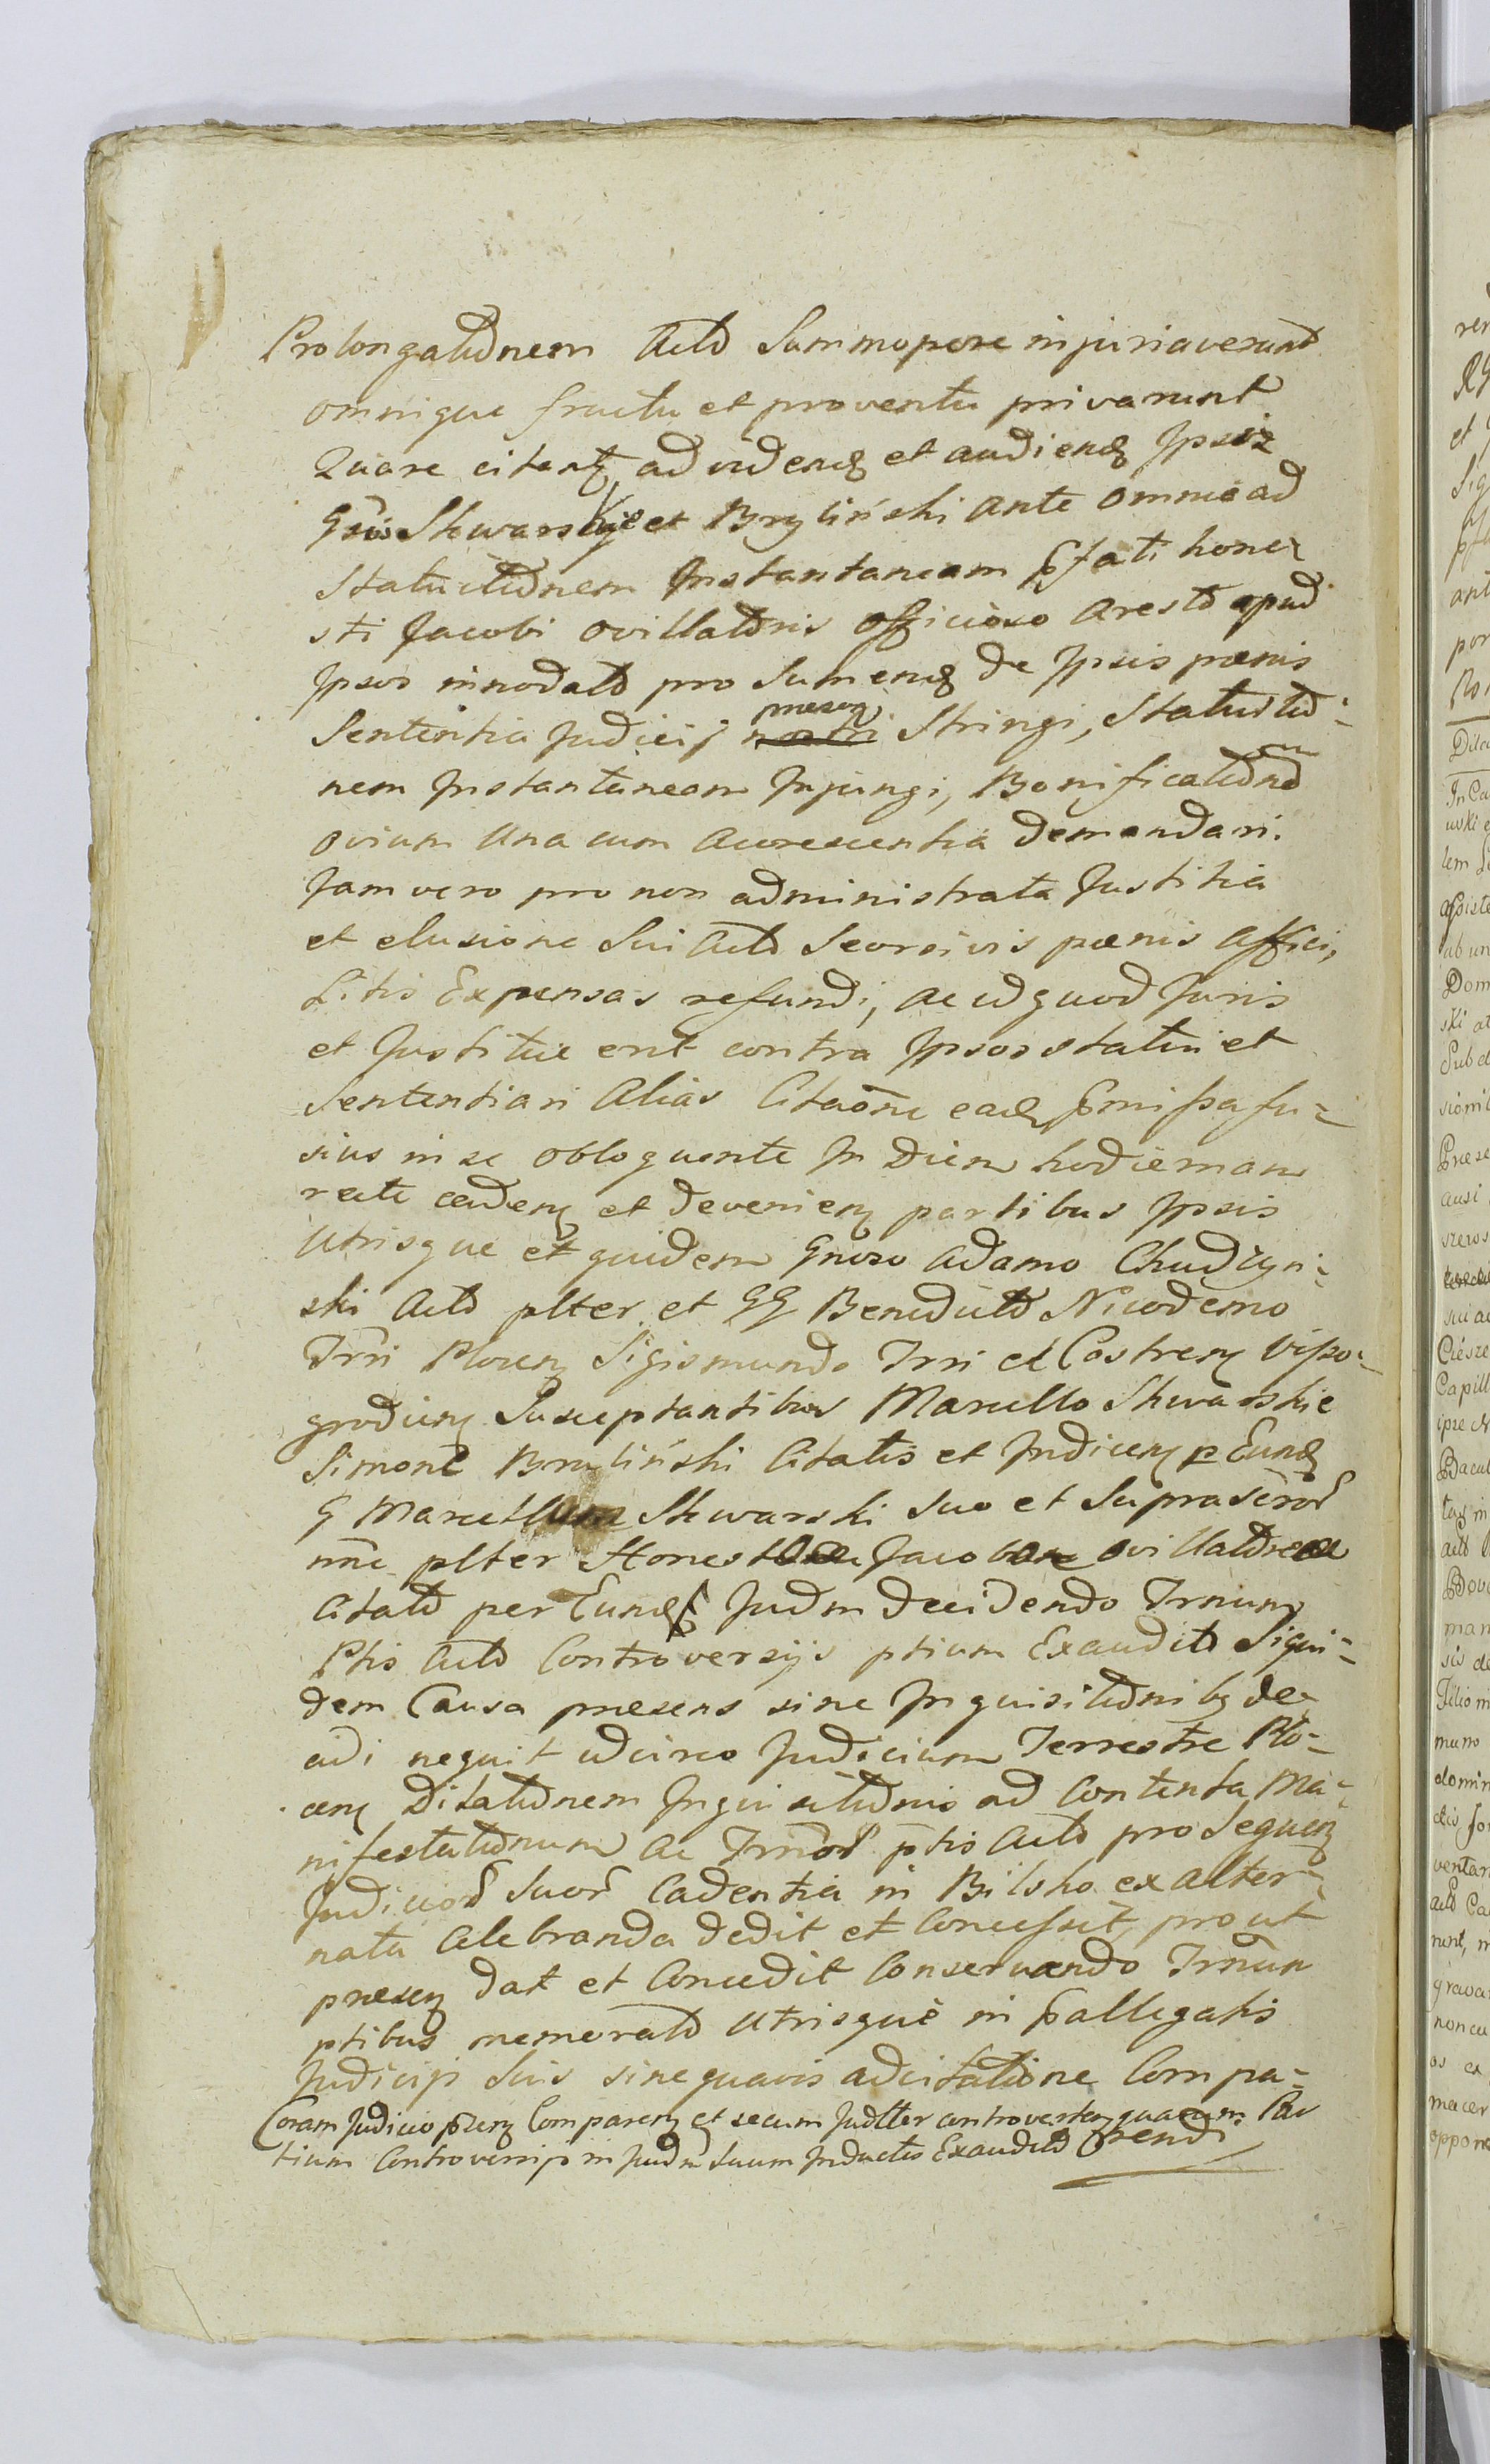 Prolongationem Acto Summopere injuriaverunt
omnique fructu et proventu privarunt
Quare citantq ad videndq et audiendq Ipsos
Gnos Skwarskie et Bryliński ante omnia ad
Statuitionem Instantaneam pfati hone-
sti Jacobi ovillatoris officioso aresto apud
Ipsos innodato pro Sumendq de Ipsis pænis
Sententia Judicij præsenq Stringi, Statuitio-
nem Instantaneam Injungi, Bonificationem
ovium una cum accrescentia demandari.
Jam vero pro non administrata Justitia
et elusione Sui Acto Seorsivis pænis affici,
Litis Expensas refundi, ac id quod Juris
et Justitiæ erit contra Ipsos statui et
Sententiari Alias Citaõne eadq pmissa fu-
sius in se obloquente In Diem hodiernam
recte cadenq et devenienq partibus Ipsis
Utrisque et quidem Gnoso Adamo Chudzyń-
ski Acto plter et GG Benedicto Nicodemo
Trri Plocenq Sigismundo Trri et Castrenq Viszo-
grodienq Susceptantibus Marcello Skwarskie
Simone Bryliński Citatis et Indicenq p Eundq
G Marcellum Skwarski suo et Suprascror
nne plter Honestum Jacobum ovillatorem
Citato per Eundq Judm decidendo Trnum
Ptis Acto Controversijs ptium Exaudito Siqui-
dem Causa præsens sine Inquisitionibq de-
cidi nequit idcirco Judicium Terrestre Plo-
cenq Ditationem Inquisitionis ad Contenta Ma-
nifestationum ac Trnor ptis Acto pro Sequenq
Judicior Suor Cadentia in Bilsko ex alter-
nata Celebranda dedit et Concessit, prout
præsenq dat et Concedit Conservando Trnum
ptibus memorato Utrisque in pallegatis
Judicijs Suis sine quavis adcitatione Compa-
rendi
Coram Judicio ptenq Comparenq et secum Judtter controvertenq quarum Par
tium Controversijs in Judm Suum Inductis Exaudito